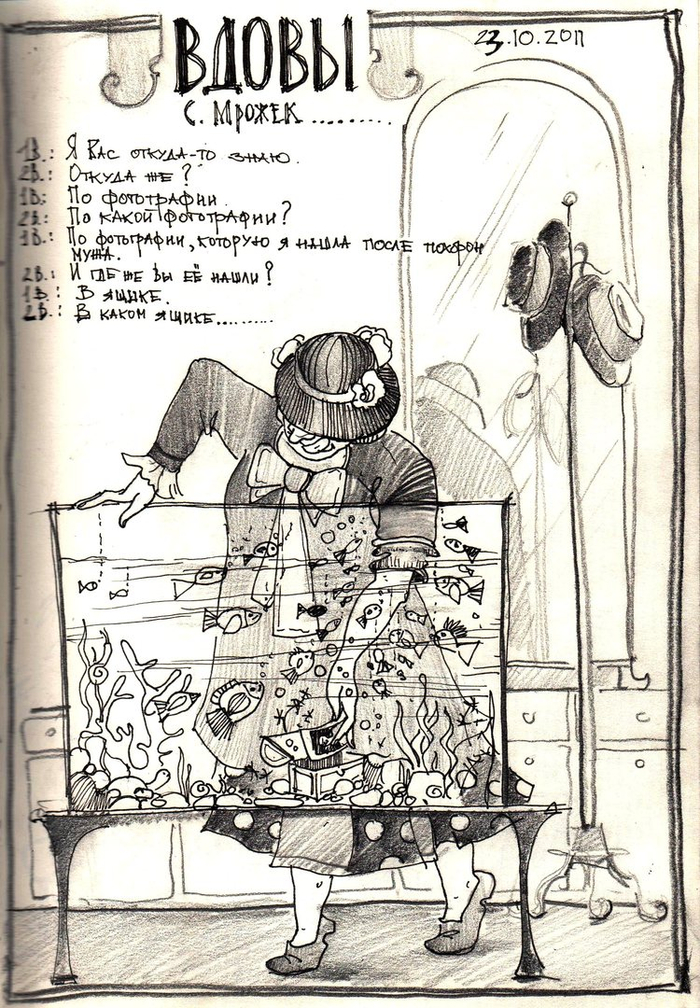 ВДОВЫ
23.10.2011
С. Мрожек..........
1В.: Я Вас откуда-то знаю.
2В.: Откуда же?
1В.: По фотографии.
2В.: По какой фотографии?
1В.: По фотографии, которую я нашла после похорон
мужа.
2В.: И где же вы её нашли?
1В.: В ящике.
2В.: В каком ящике..........